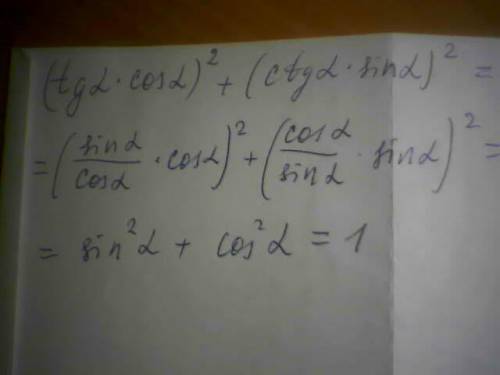 (tgα·cosα)² + (ctgα·sinα)² =
= (sinα/cosα · cosα)² + (cosα/sinα · sinα)² =
= sin²α + cos²α = 1